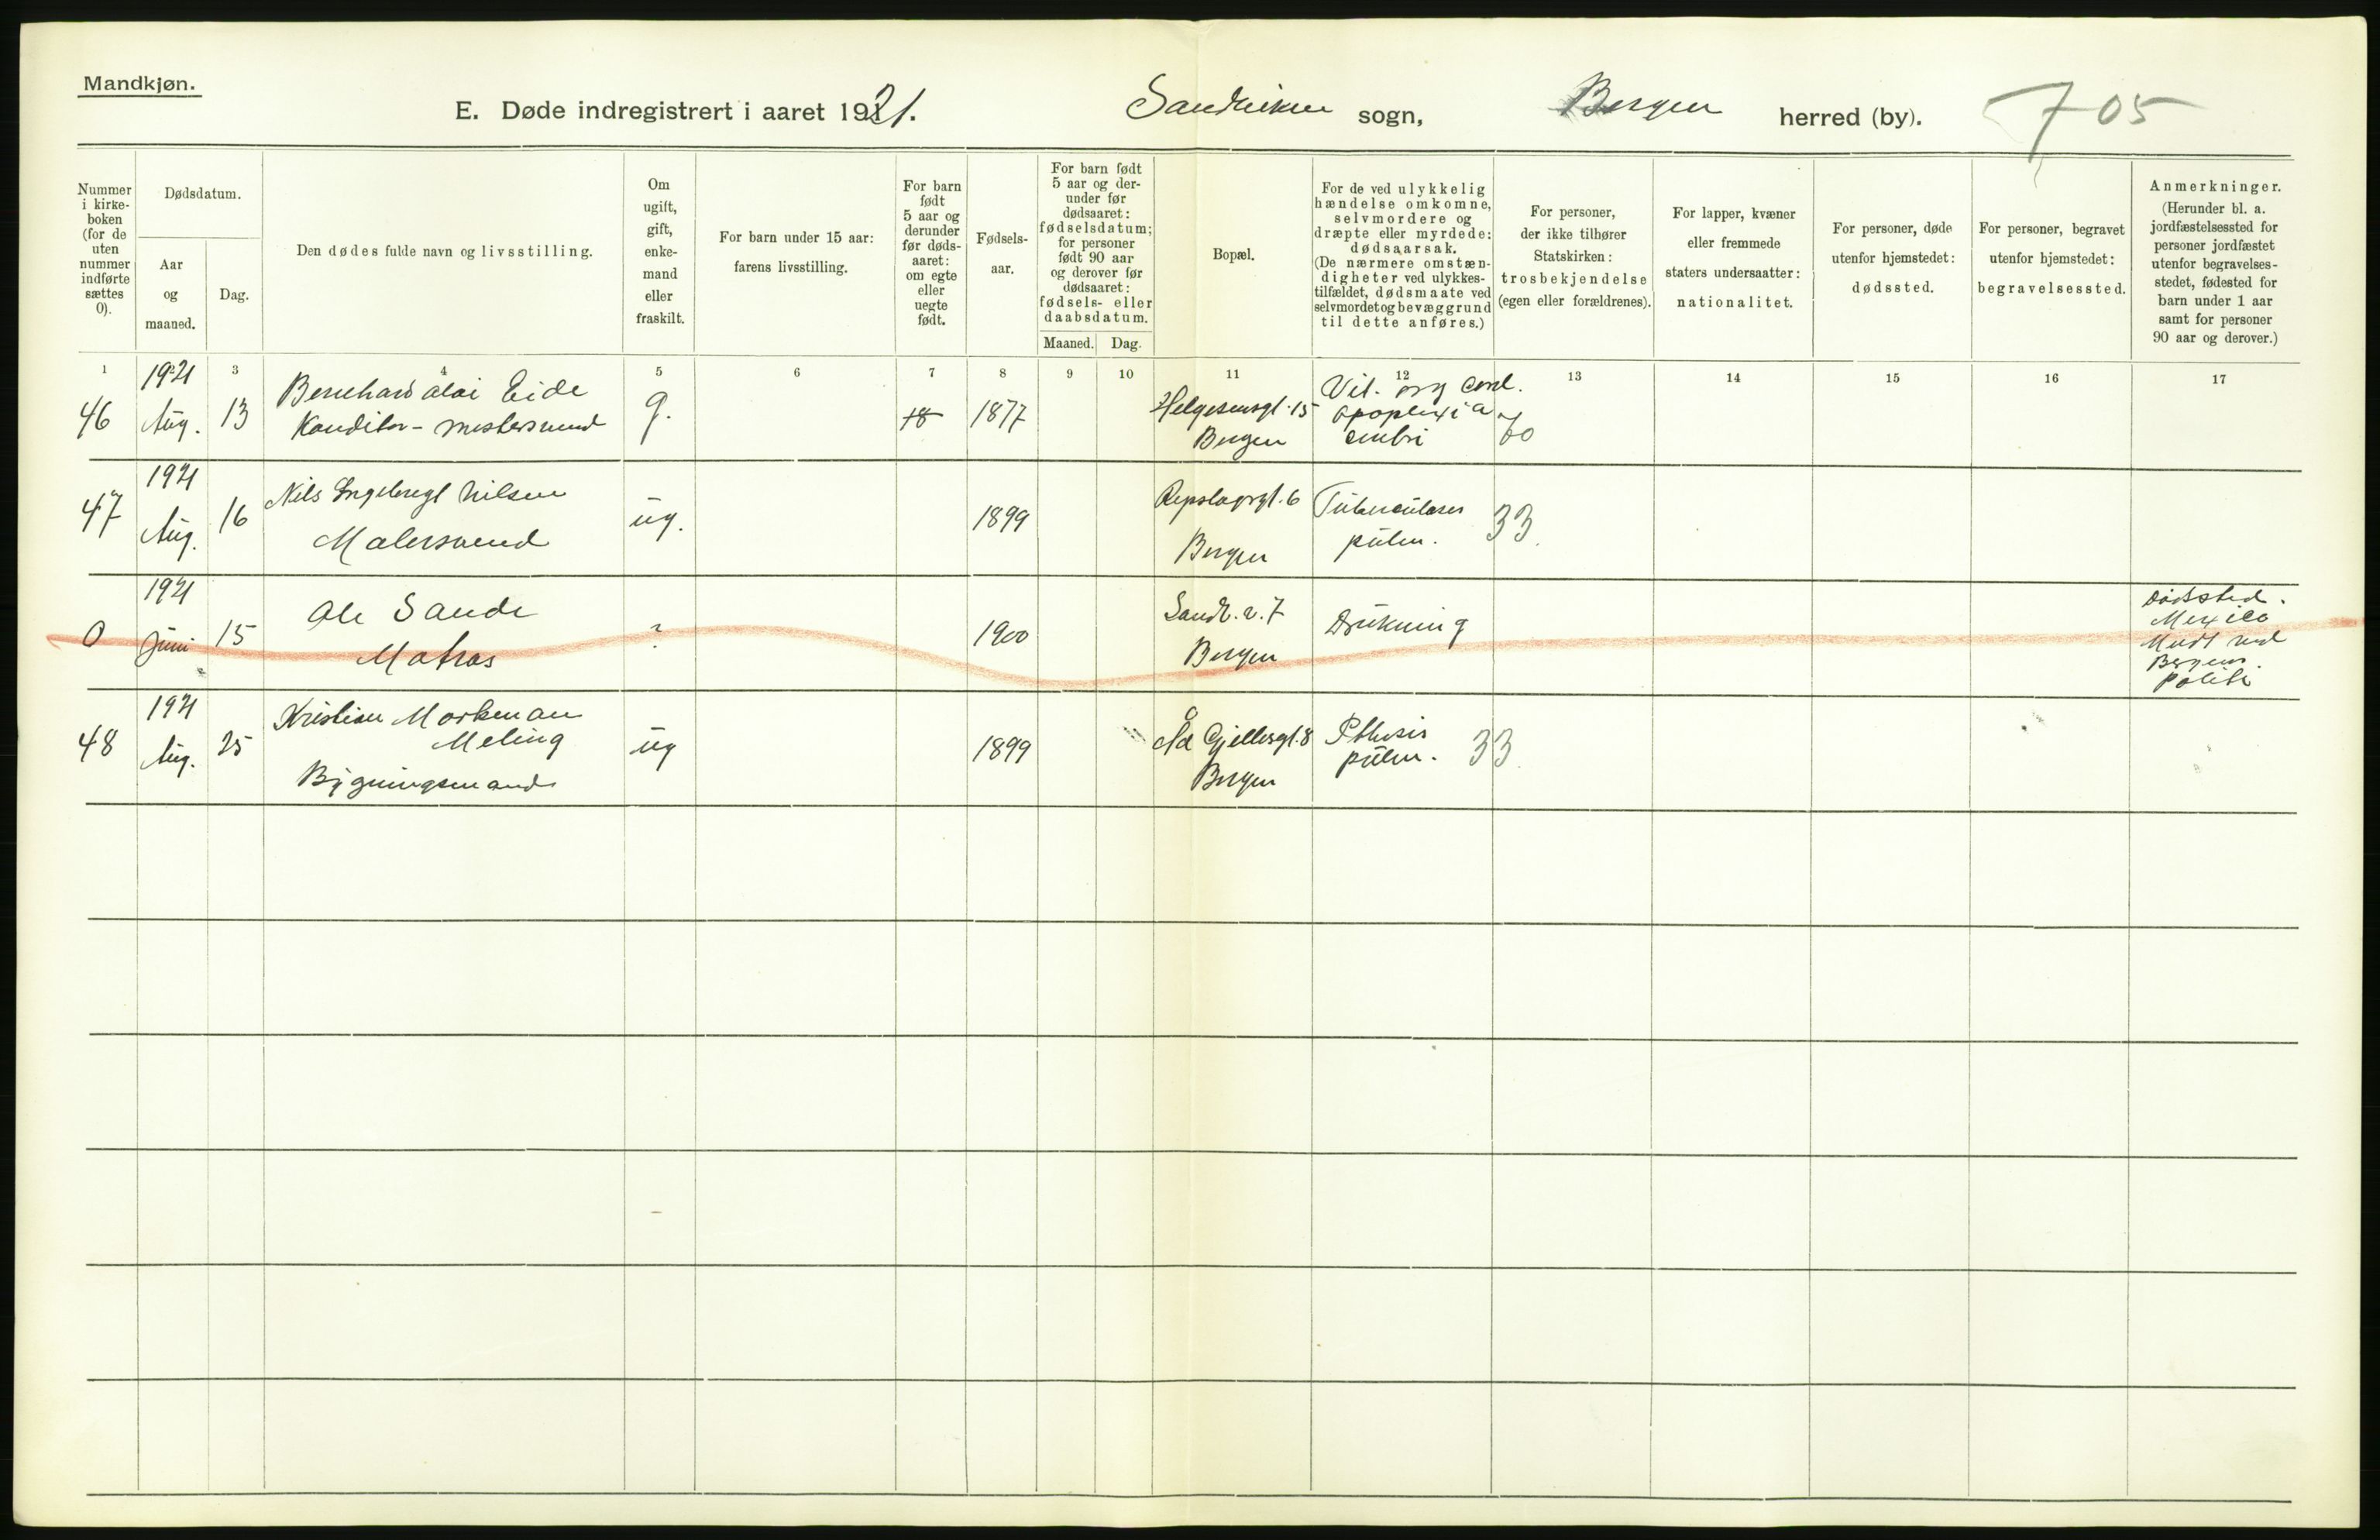 Mandkjøn.
E. Døde indregistrert i aaret 1921. Sandviken sogn, Bergen herred (by). 705
Nummer i kirke-boken (for de uten nummer indførte sættes 0).
Dødsdatum.
Aar og maaned.
Dag.
Den dødes fulde navn og livsstilling.
Om ugift, gift, enke-mand eller fraskilt.
For barn under 15 aar: farens livsstilling.
For barn født 5 aar og derunder før døds-aaret: om egte eller uegte født.
Fødsels-aar.
For barn født 5 aar og der-under før dødsaaret: fødselsdatum; for personer født 90 aar og derover før dødsaaret: fødsels- eller daabsdatum.
Maaned. Dag.
Bopæl.
For de ved ulykkelig hændelse omkomne, selvmordere og dræpte eller myrdede: dødsaarsak. (De nærmere omstæn-digheter ved ulykkes-tilfældet, dødsmaate ved selvmordet og bevæggrund til dette anføres.)
For personer, der ikke tilhører Statskirken: trosbekjendelse (egen eller forældrenes).
For lapper, kvæner eller fremmede staters undersaatter: nationalitet.
For personer, døde utenfor hjemstedet: dødssted.
For personer, begravet utenfor hjemstedet: begravelsessted.
Anmerkninger. (Herunder bl. a. jordfæstelsessted for personer jordfæstet utenfor begravelses-stedet, fødested for barn under 1 aar samt for personer 90 aar og derover.)
1 3 4 5 6 7 8 9 10 11 12 13 14 15 16 17
46 1921 Aug. 13 Bernhard Eide Konditor-mestersvend g. 18 1877 Helgesensgt. 15 Bergen Vit. org cord. apoplexia
47 1921 Aug. 16 Nils Engebregt Nilsen Malersvend ug. 1899 Repslagergt. 6 Bergen Tuberculoses pulm. 33.
0 1921 Juni 15 Ole Sande Matros ? 1900 Sandv. v. 7 Bergen Drukning Dødssted. Mexico Meldt ved Bergens politi
48 1921 Aug. 25 Kristian Markman Meling Bygningsmand ug 1899 Ad Gjellesgt. 8 Bergen Pthisis pulm. 33.